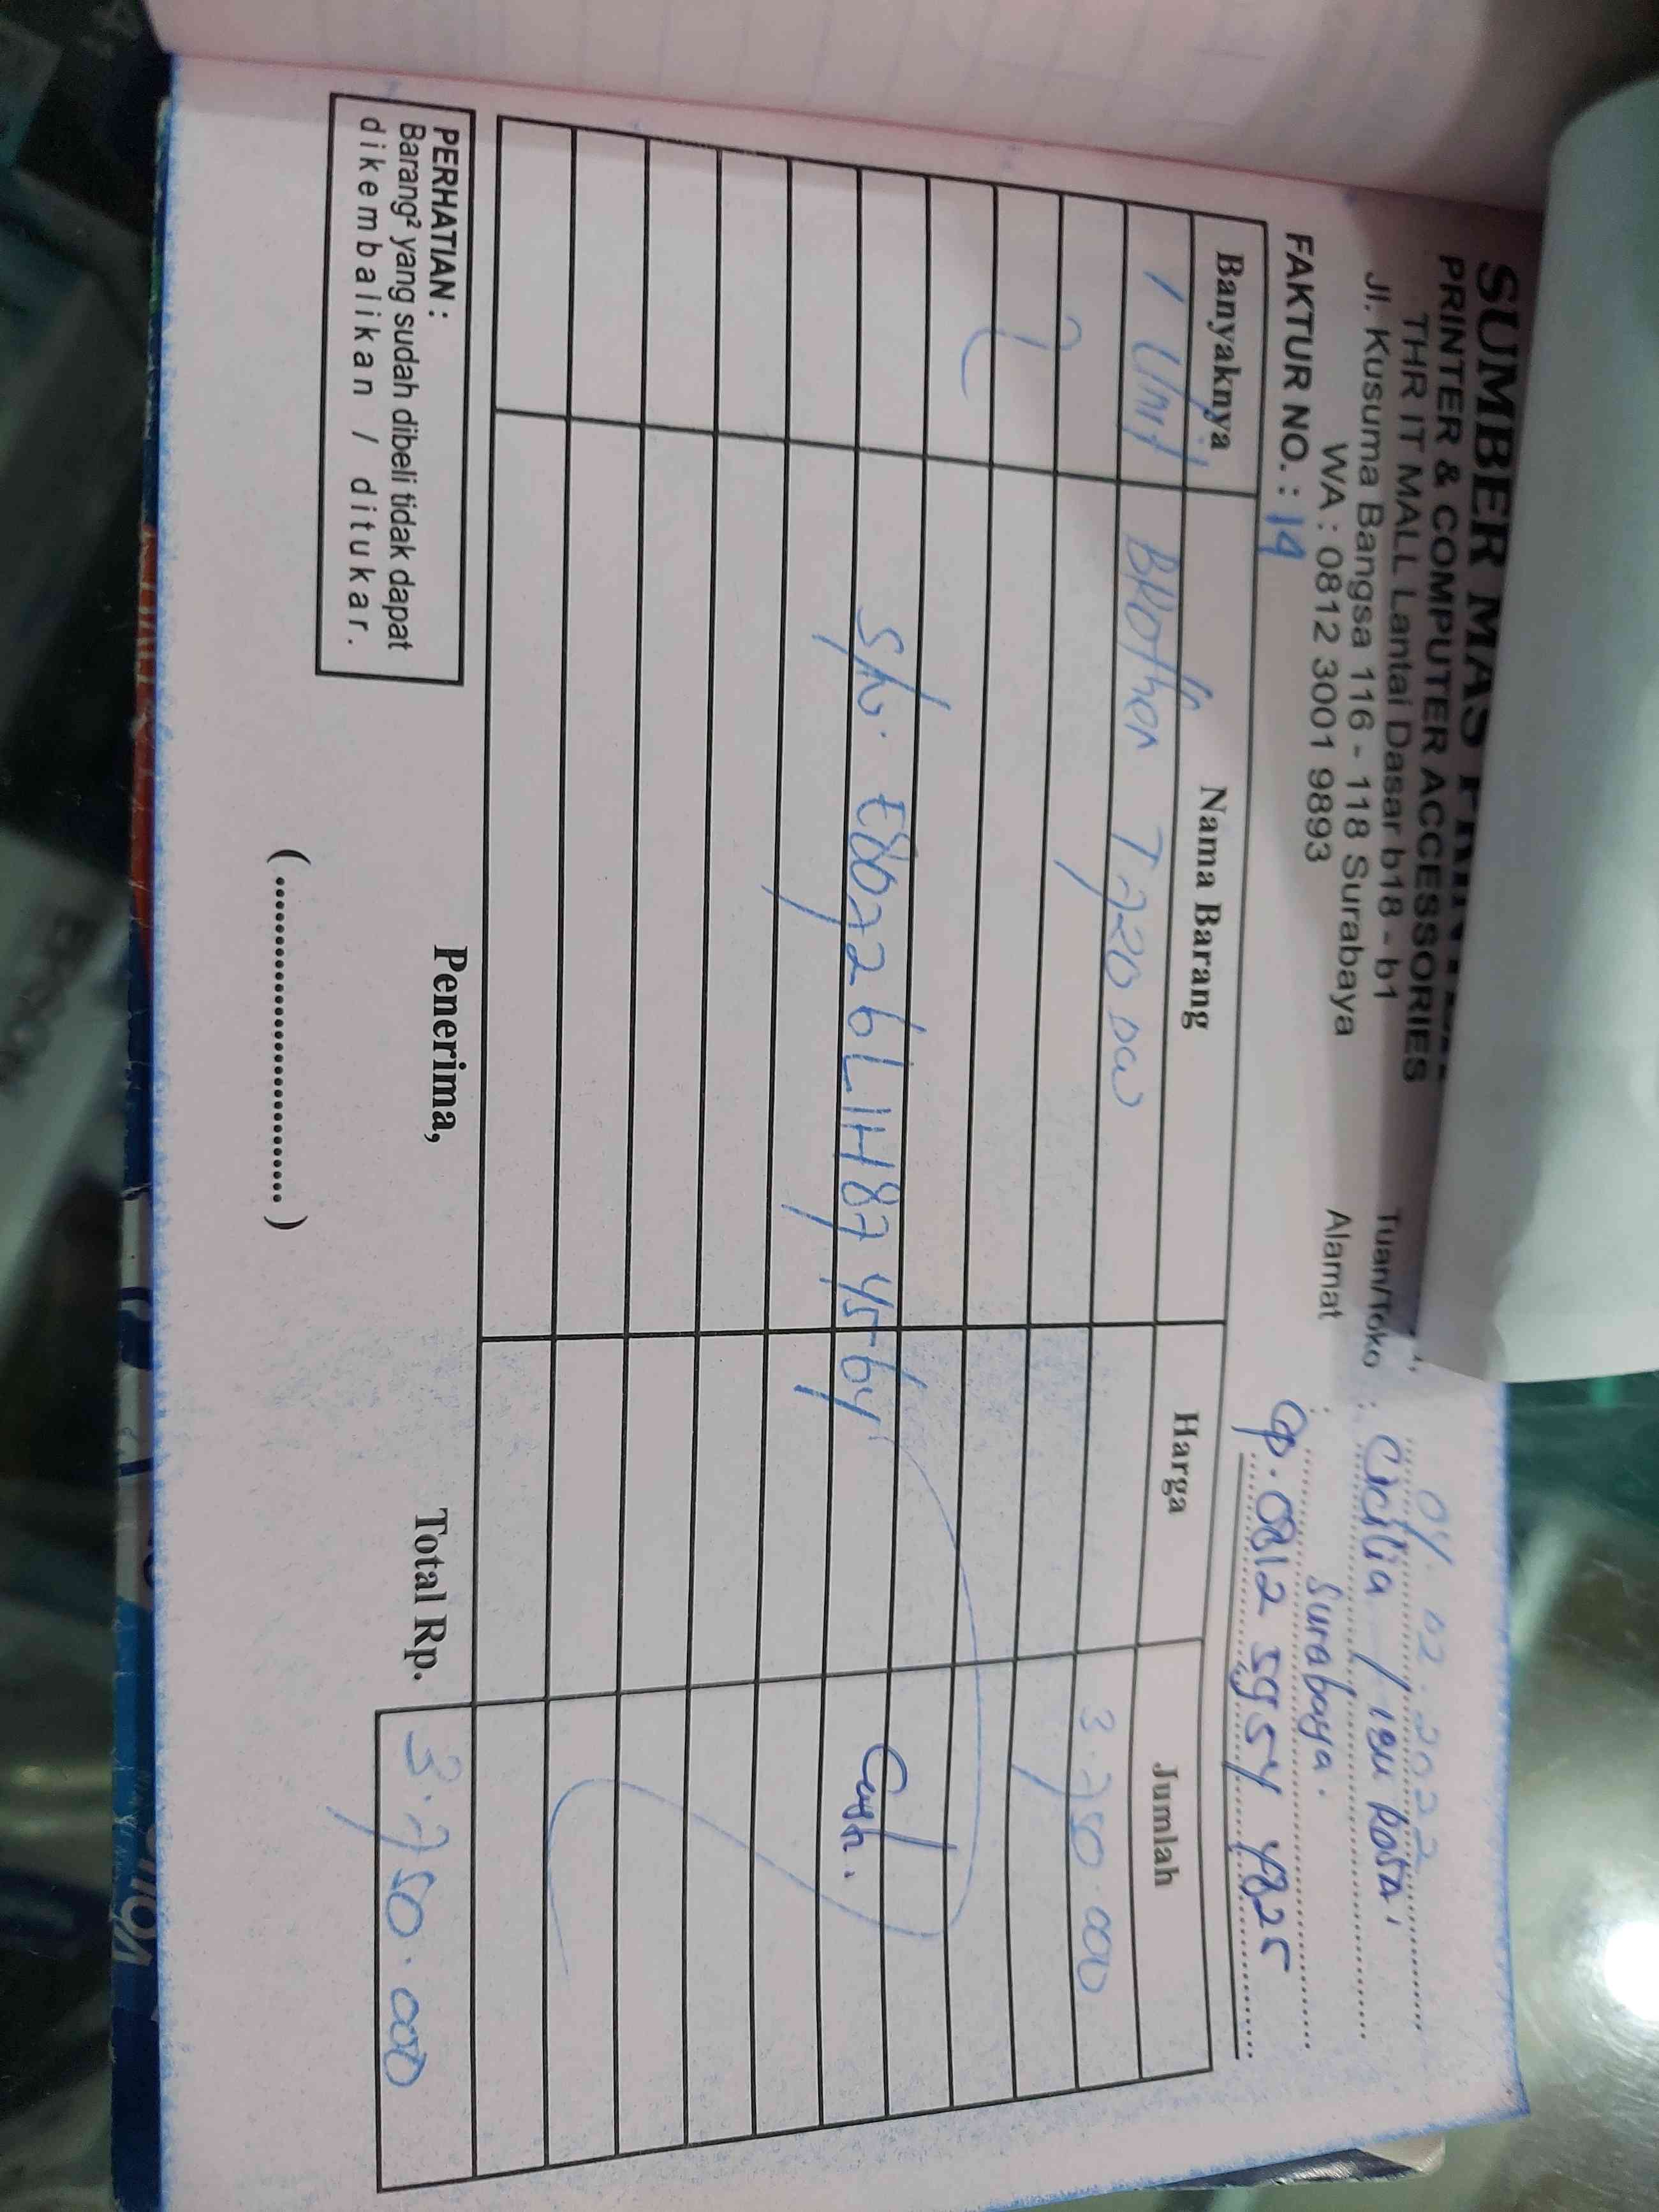 SUMBER MAS
PRINTER & COMPUTER ACCESSORIES
THR IT MALL Lantai Dasar b18 - b1
Jl. Kusuma Bangsa 116 - 118 Surabaya
WA : 0812 3001 9893
04. 02. 2022
Tuan/Toko : Cicilia / IBU ROSA
Alamat : Surabaya.
cp. 0812 5954 4825
FAKTUR NO. : 14
Banyaknya Nama Barang Harga Jumlah
1 Unit BROTHER T720 DW 3.750.000
S/N. E80726L1H874564
Cash.
PERHATIAN :
Barang² yang sudah dibeli tidak dapat
dikembalikan / ditukar.
Penerima,
Total Rp. 3.750.000
(..............................)